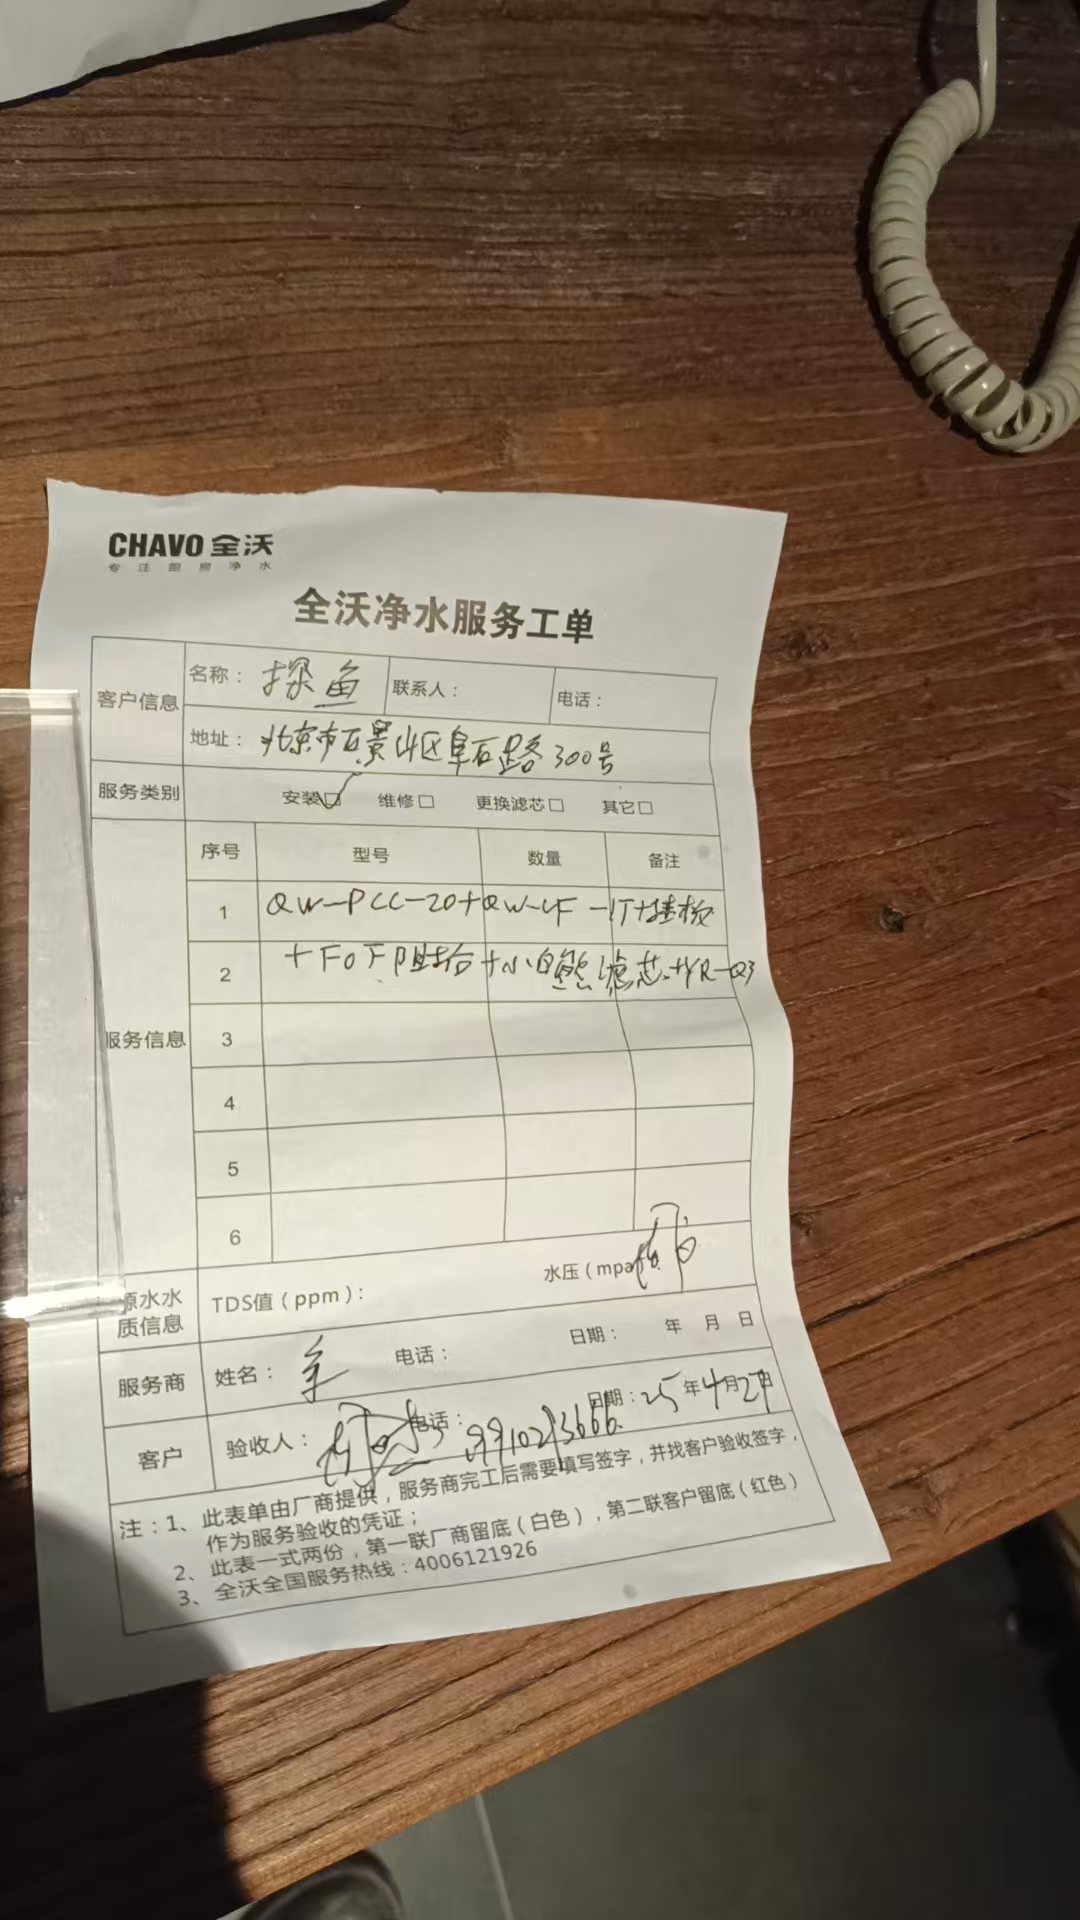 CHAVO 全沃
专注厨房净水
全沃净水服务工单
客户信息 名称：探鱼 联系人： 电话：
地址：北京市石景山区阜石路300号
服务类别 安装☑ 维修□ 更换滤芯□ 其它□
服务信息 序号 型号 数量 备注
1 QW-PCC-20+QW-UF-1T+挂板
2 +FOF阻垢+小白熊滤芯+YR-Q3
3
4
5
6
源水水质信息 TDS值（ppm）： 水压（mpa
服务商 姓名： 电话： 日期： 年 月 日
客户 验收人： 电话： 日期：25年4月27日
注：1、此表单由厂商提供，服务商完工后需要填写签字，并找客户验收签字，
作为服务验收的凭证；
2、此表一式两份，第一联厂商留底（白色），第二联客户留底（红色）
3、全沃全国服务热线：4006121926